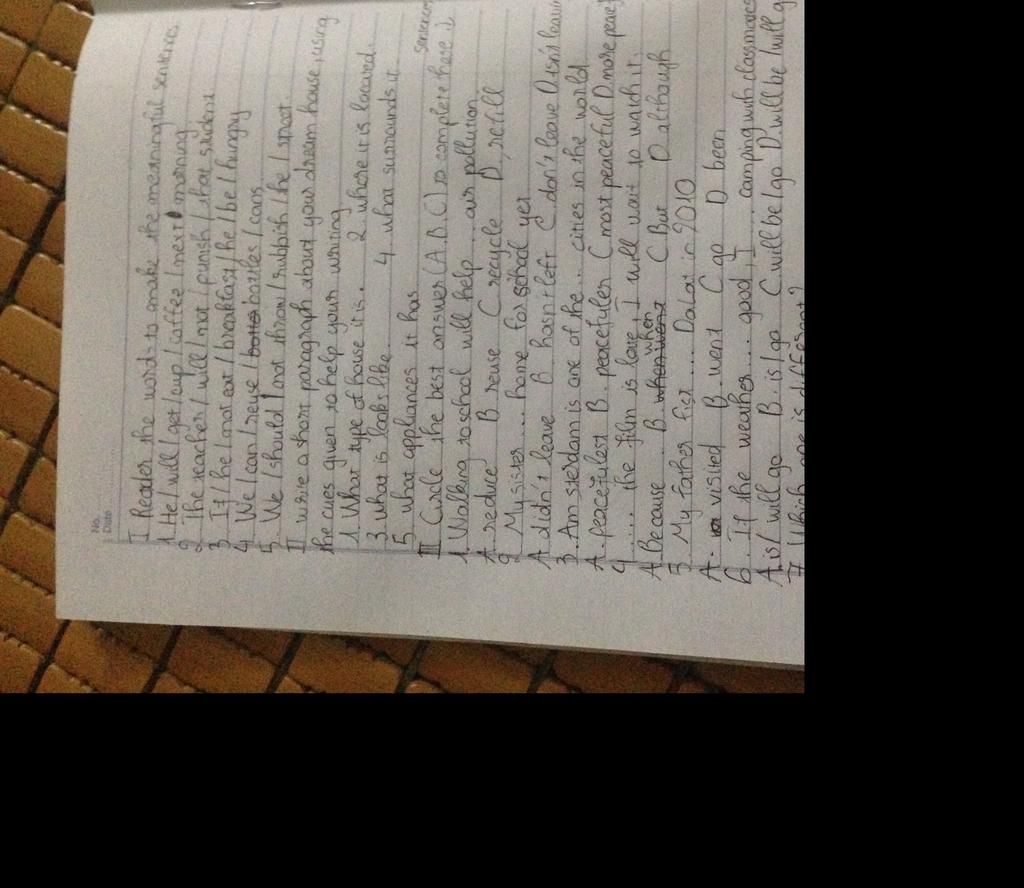 No.
Date
I Reoder the words to make the meaningful sentences
1. He / will / get / cup / coffee / next morning
2. The teacher / will / not / punish / that student
3. If / he / not eat / breakfast / he / be / hungry
4. We / can / reuse / bottles / cans
5. We / should / not throw / rubbish / he / spoot.
II write a short paragraph about your dream house, using
the cues given to help your writing
1. What type of house it is. 2 where it is located.
3. what is looks like 4. what surrounds it
5. what appliances it has
III Circle the best answer (A.B.C) to complete these sentences
1. Walking to school will help ... air pollution.
A. reduce B. reuse C recycle D, refill
2 My sister ... home for school yet
A didn't leave B hasn't left C don't leave D.isn't leavin
3. Am sterdam is one of the ... cities in the world
A. peacefulest B. peacefuler C most peaceful D.more peace
4 .... the film is love, I will wait to watch it.
A. Because B. when C But D although
5 My father fist .... Dalat in 2010
A. visited B. went C go D been
6. If the weather .... good, I .... camping with classmates
A. is / will go B. is / go C. will be / go D. will be / will g
7. Which one is different?